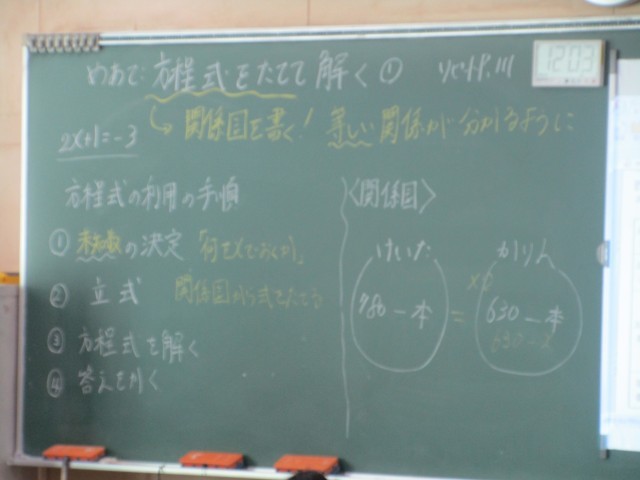 めあて:方程式をたてて解く①
12:03
↳関係図を書く! 等しい関係が分かるように
2x+1=-3
方程式の利用の手順
① 未知数の決定「何をxでおくか」
② 立式 関係図から式をたてる
③ 方程式を解く
④ 答えをかく
〈関係図〉
けいた かりん
780-本 = 630-本